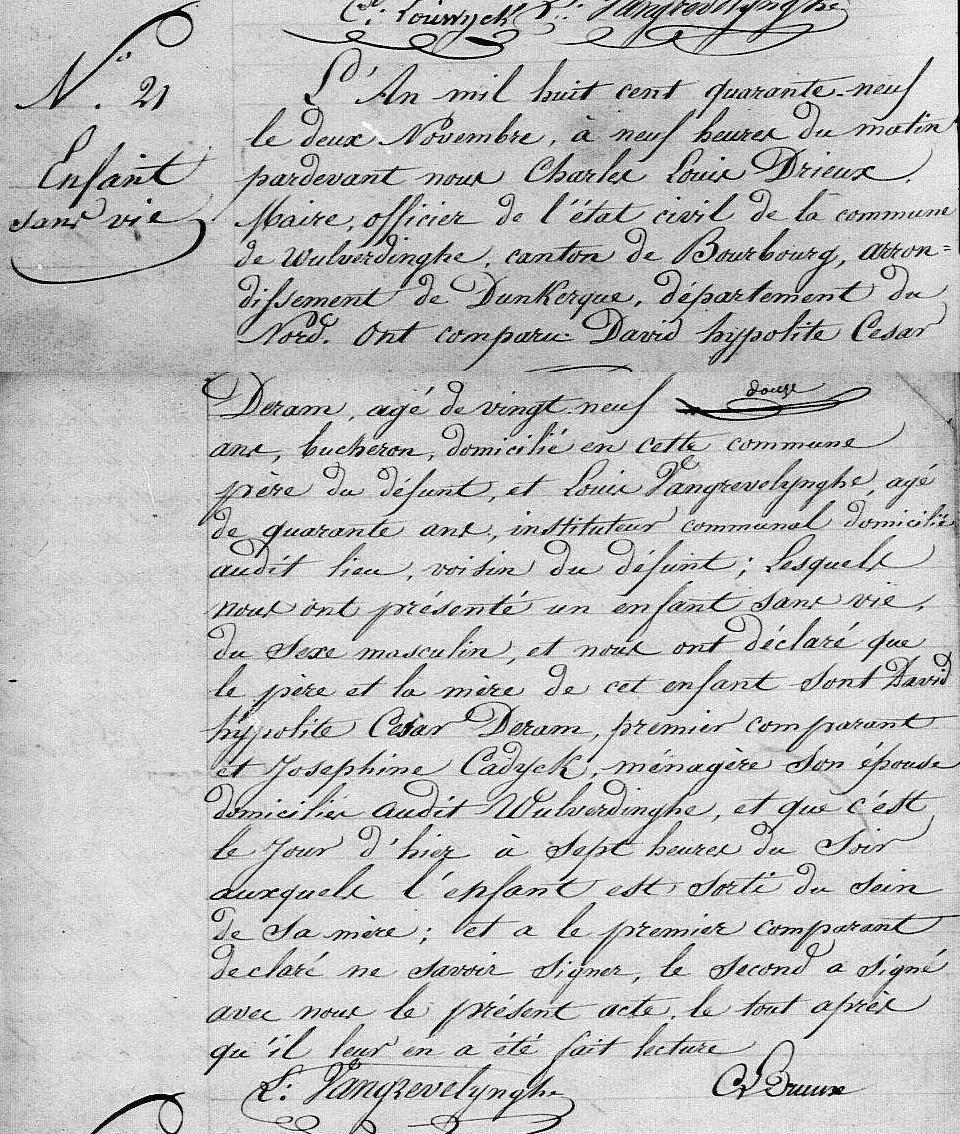 Ct. Louwyck L.: Vangrevelynghe
N.° 21
Enfant
sans vie
L'An mil huit cent quarante-neuf
le deux Novembre, à neuf heures du matin
pardevant nous Charles Louis Drieux,
Maire, officier de l'état civil de la commune
de Wulverdinghe, canton de Bourbourg, arron=
dissement de Dunkerque, département du
Nord. Ont comparu David hypolite Cesar
Deram, agé de vingt-neuf douze
ans, bucheron, domicilié en cette commune
père du défunt, et Louis Vangrevelynghe, agé
de quarante ans, instituteur communal domicilié
audit lieu, voisin du défunt; Lesquels
nous ont présenté un enfant sans vie,
du Sexe masculin, et nous ont déclaré que
le père et la mère de cet enfant Sont David
hypolite Cesar Deram, premier comparant
et Josephine Cadyck, ménagère Son épouse
domiciliés audit Wulverdinghe, et que c'est
le Jour d'hier à Sept heures du Soir
auxquels l'enfant est Sorti du Sein
de Sa mère; et a le premier comparant
declaré ne Savoir Signer, le Second a Signé
avec nous le présent acte, le tout après
qu'il leur en a été fait lecture
L. Vangrevelynghe CLDrieux